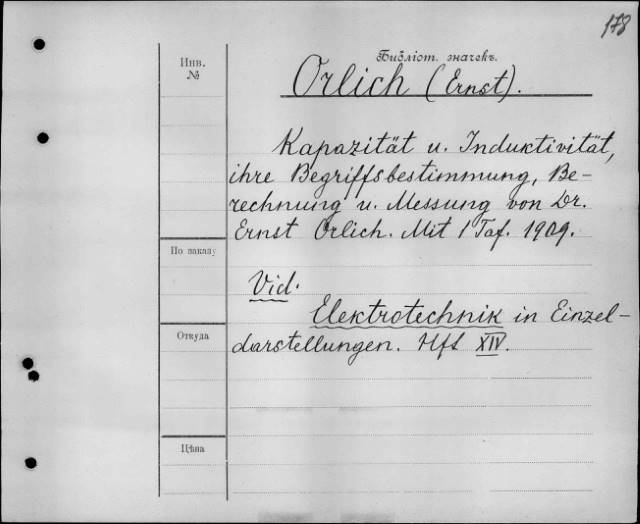 178
Библіот. значекъ.
Инв.
№
Orlich (Ernst).
Kapazität u. Induktivität,
ihre Begriffsbestimmung, Be-
rechnung u. Messung von Dr.
Ernst Orlich. Mit 1 Taf. 1909.
По заказу
Vid.
Elektrotechnik in Einzel-
Откуда
darstellungen. Hft XIV.
Цѣна